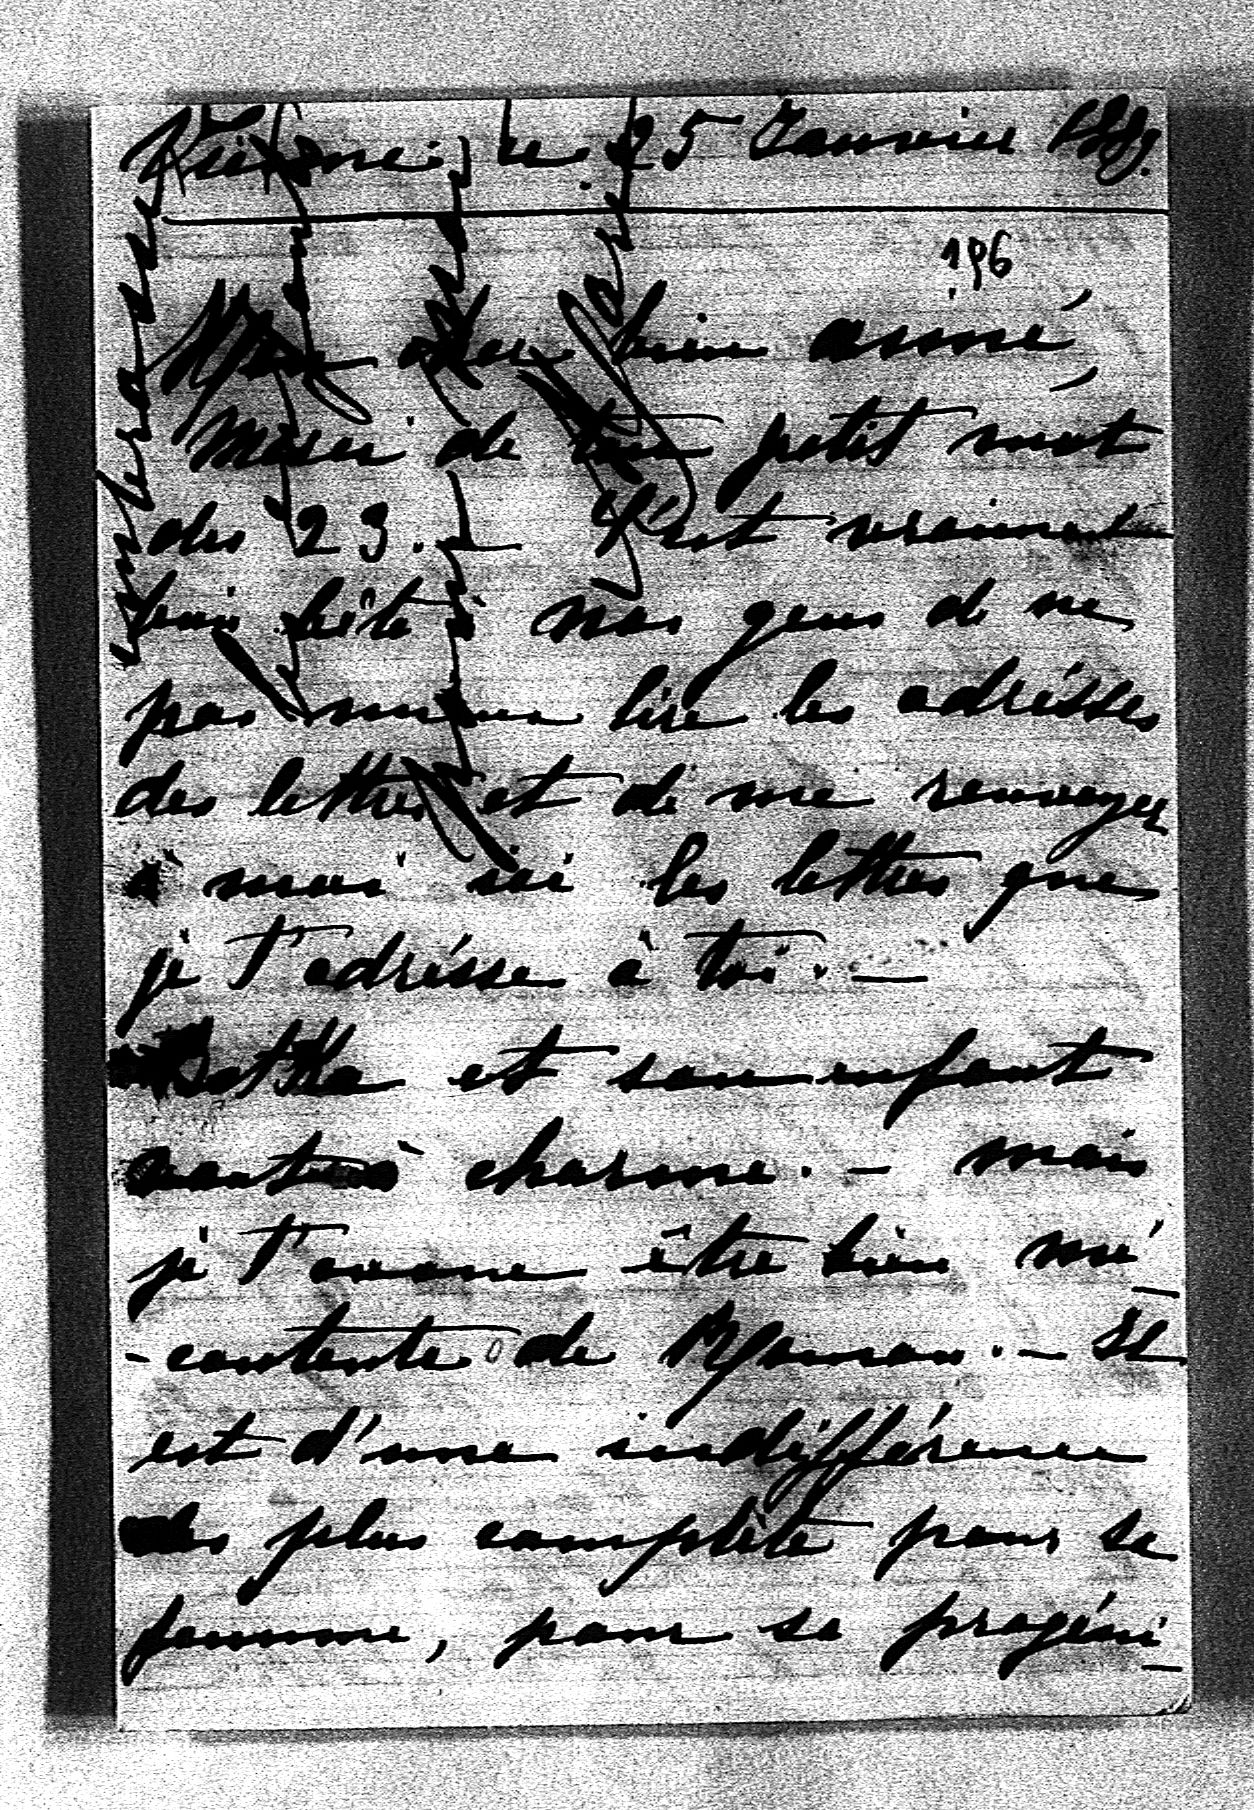 Vienne, le 25 Janvier 1889.
196
Mon cher bien aimé,
Merci de ton petit mot
du 23. — C'est vraiment
bien bête à nos gens de ne
pas mieux lire les adrésses
des lettres et de me renvoyer
à moi ici les lettres que
je t'adrésse à toi. —
Betka et son enfant
vont à charme. — mais
je t'avoue être bien mé-
-contente de Maman. — Il
est d'une indifférence
des plus complète pour sa
femme, pour sa progéni-